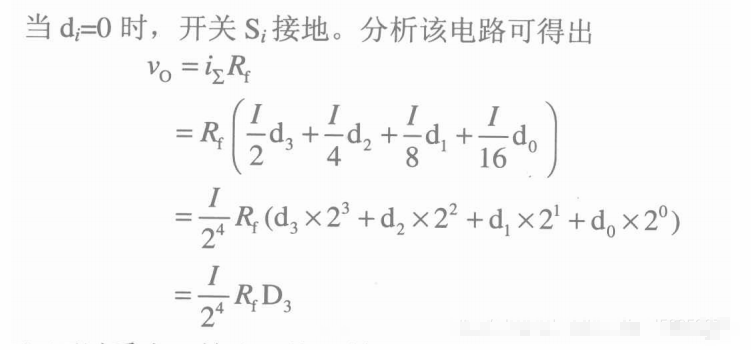 当 dᵢ=0 时，开关 Sᵢ 接地。分析该电路可得出
v_O = i_Σ R_f
= R_f (I/2 d₃ + I/4 d₂ + I/8 d₁ + I/16 d₀)
= I/2⁴ R_f (d₃×2³ + d₂×2² + d₁×2¹ + d₀×2⁰)
= I/2⁴ R_f D₃